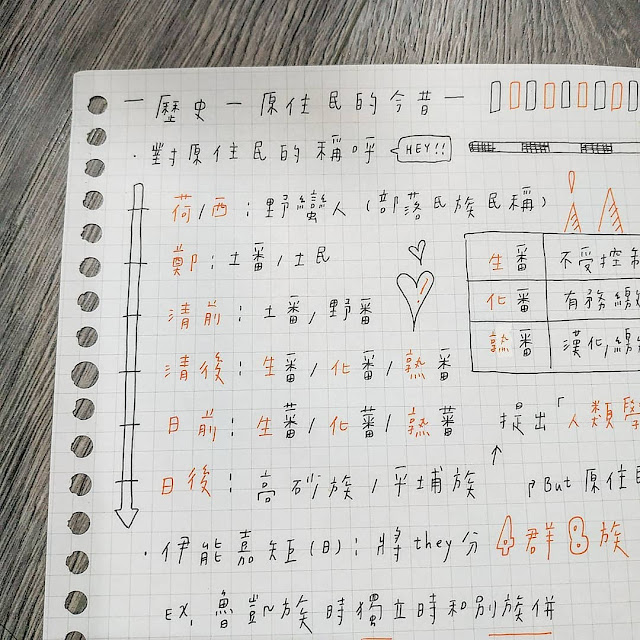 一歷史一原住民的今昔一
·對原住民的稱呼 HEY!!
荷/西:野蠻人(部落民族民稱)
鄭:土番/土民
清前:土番/野番
清後:生番/化番/熟番
日前:生蕃/化蕃/熟蕃
日後:高砂族/平埔族
生番 不受控制
化番 有務繳
熟番 漢化,繳
提出「人類學
But 原住民
·伊能嘉矩(日):將they分4群8族
EX. 魯凱族時獨立時和別族併